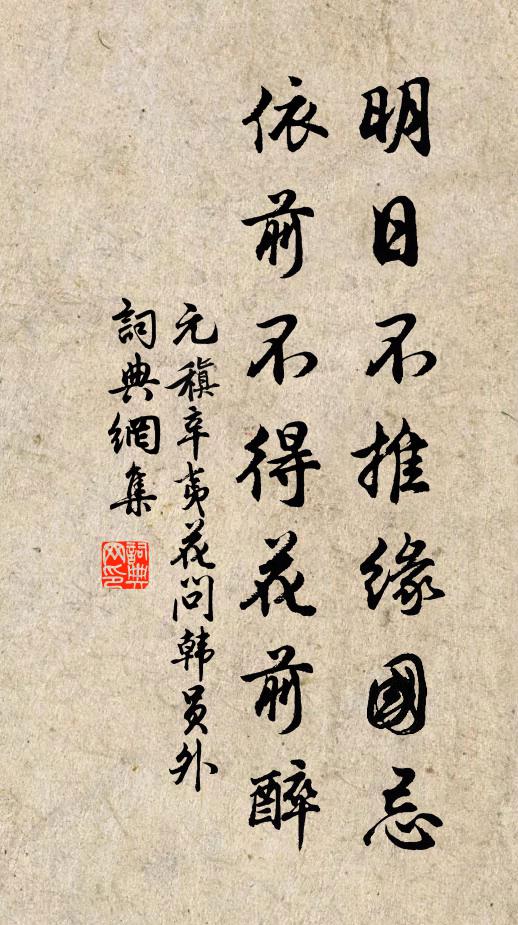 明日不推緣國忌
依前不得花前醉
元稹辛夷花问韩员外
詞典網集
詞典網印